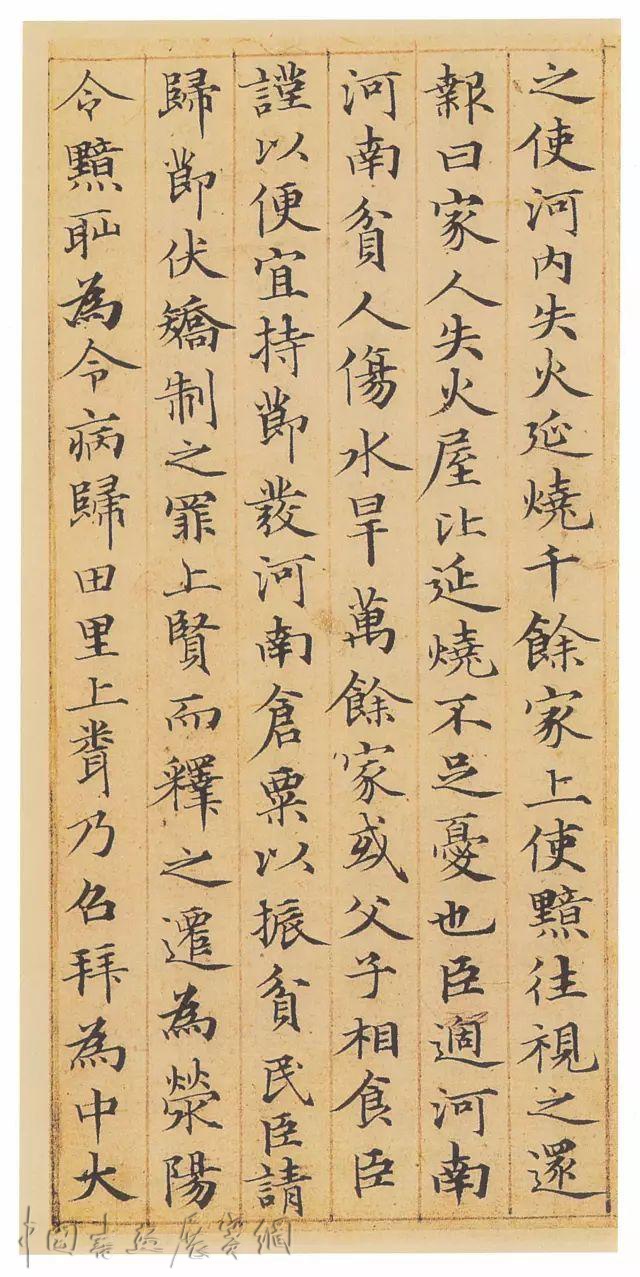 之使河內失火延燒千餘家上使黯往視之還
報曰家人失火屋比延燒不足憂也臣過河南
河南貧人傷水旱萬餘家或父子相食臣
謹以便宜持節發河南倉粟以振貧民臣請
歸節伏矯制之罪上賢而釋之遷為滎陽
令黯恥為令病歸田里上聞乃召拜為中大
中国书法展赏網